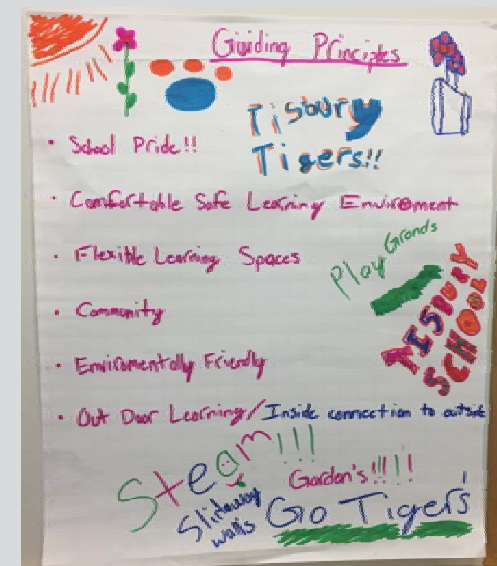 Guiding Principles
Tisbury
Tigers!!
• School Pride!!
• Comfortable Safe Learning Enviroment
• Flexible Learning Spaces
Play Gronds
TISBURY
SCHOOL
• Community
• Enviromentally Friendly
• Out Door Learning/Inside connection to outside
Steam!!!
Gardon's!!!!
Slideaway
walls
Go Tigers!